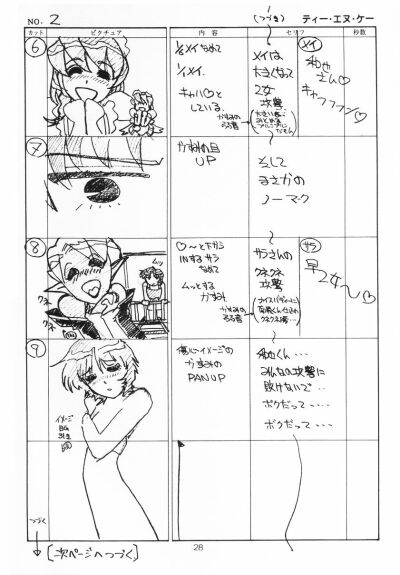 NO. 2
(つづき)
ティー・エヌ・ケー
カット
ピクチュア
内容
セリフ
秒数
6
1/8メイなめて
1/1メイ.
キャハ♡と
している.
メイは
大きくなって
乙女
攻撃
メイ
和也
さん♡
キャフフフン♡
7
かすみの目
UP
そして
まさかの
ノーマーク
8
ムッ
クネ
クネ
♡〜と下から
INするサラ
なめて
ムッとする
かすみ
サラさんの
クネクネ
攻撃
サラ
早乙女〜♡
9
イメージ
BG
別
傷心イメージの
かすみの
PAN UP
和也くん…
みんなの攻撃に
負けないで‥
ボクだって‥‥
ボクだって‥‥
つづく
[次ページへつづく]
28